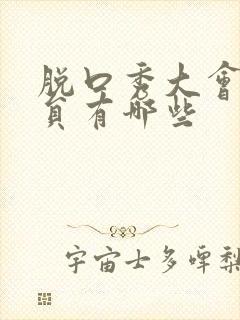 脱口秀大會
員有哪些
宇宙士多啤梨